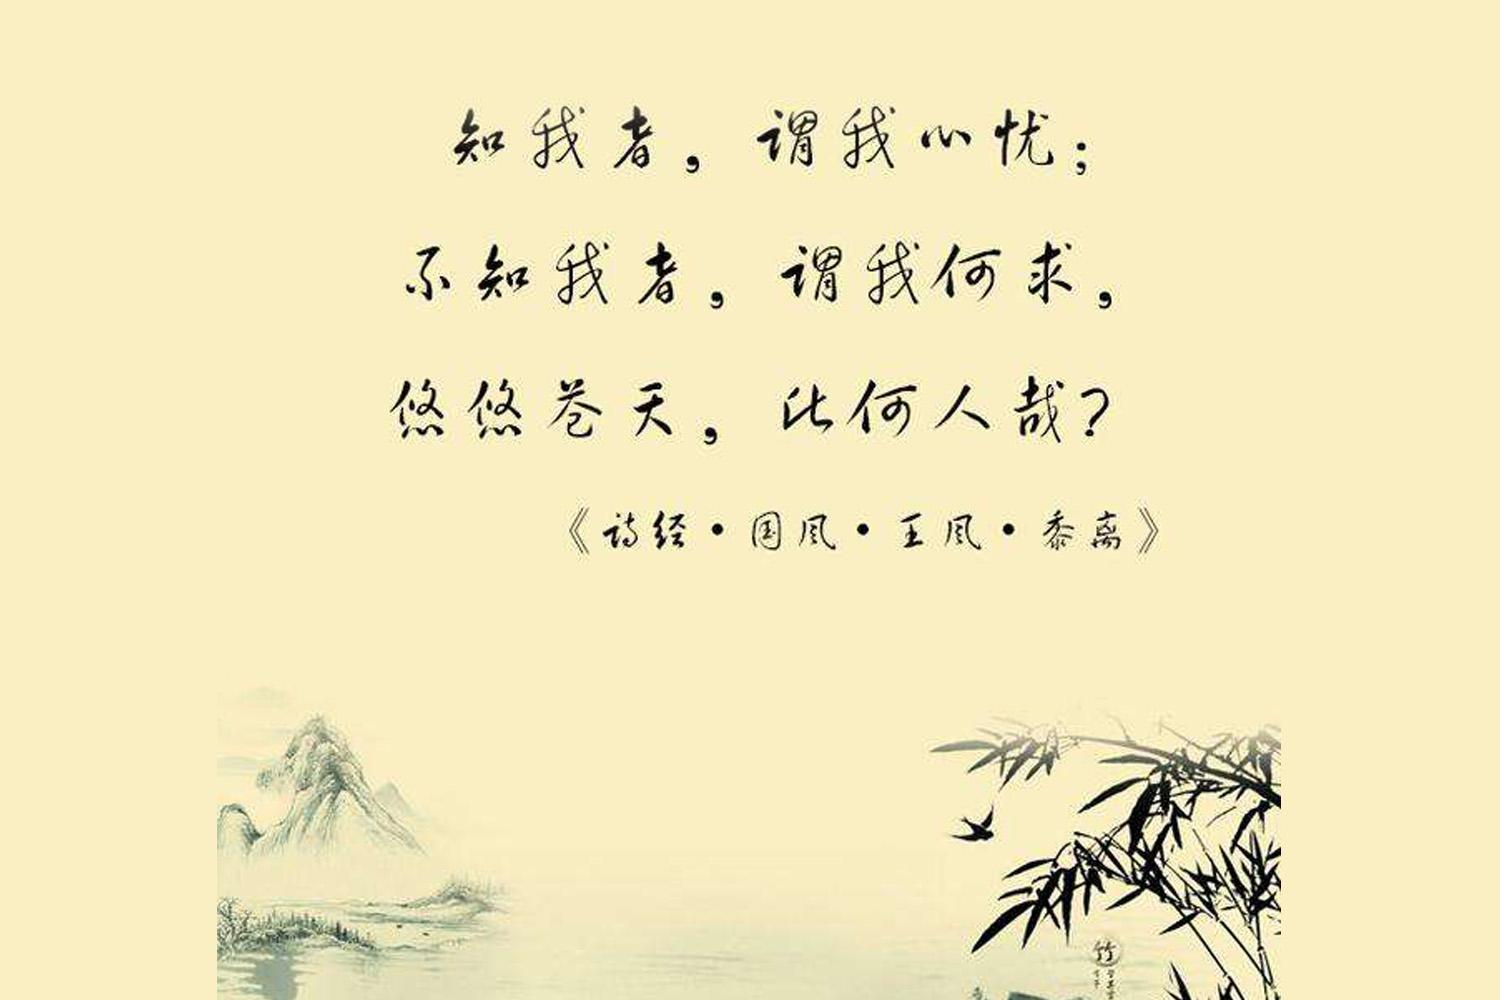 知我者，谓我心忧；
不知我者，谓我何求，
悠悠苍天，此何人哉？
《诗经·国风·王风·黍离》
竹